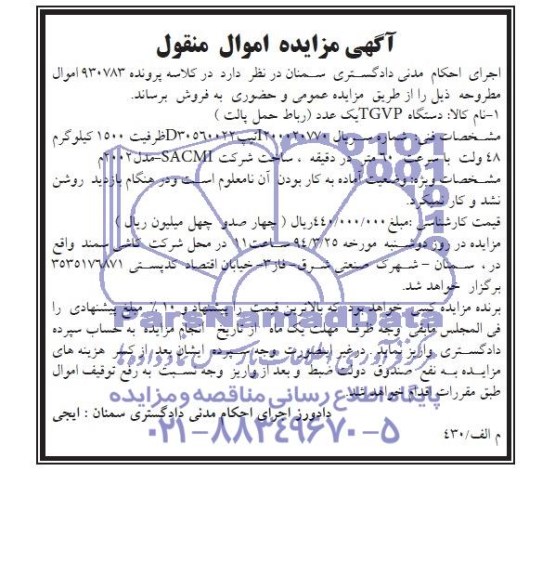 آگهی مزایده اموال منقول
اجرای احکام مدنی دادگستری سمنان در نظر دارد در کلاسه پرونده ۹۳۰۷۸۳ اموال
مطروحه ذیل را از طریق مزایده عمومی و حضوری به فروش برساند.
۱-نام کالا: دستگاه TGVPیک عدد (رباط حمل پالت )
مشخصات فنی: شماره سریال I۲۰۰۰۲۰۷۷۰تیپD۳۰۵۶۰۰۲۲ظرفیت ۱۵۰۰ کیلوگرم
۴۸ ولت با سرعت ۶۰ متر در دقیقه ، ساخت شرکت SACMI-مدل۲۰۰۲م
مشخصات ویژه: وضعیت آماده به کار بودن آن نامعلوم است ودر هنگام بازدید روشن
نشد و کار نمیکرد.
قیمت کارشناسی :مبلغ ۴۴۰/۰۰۰/۰۰۰ریال ( چهار صدو چهل میلیون ریال )
مزایده در روز دوشنبه مورخه ۹۴/۳/۲۵ ساعت۱۱ در محل شرکت کاشی سمند واقع
در ، سمنان – شهرک صنعتی شرق- فاز۳- خیابان اقتصاد کدپستی ۳۵۳۵۱۷۶۸۷۱
برگزار خواهد شد.
برنده مزایده کسی خواهد بود که بالاترین قیمت را پیشنهادو ۱۰٪ مبلغ پیشنهادی را
فی المجلس مابقی وجه ظرف مهلت یک ماه از تاریخ انجام مزایده به حساب سپرده
دادگستری واریز نماید درغیر اینصورت وجه سپرده ایشان بعد از کسر هزینه های
مزایده به نفع صندوق دولت ضبط و بعد از واریز وجه نسبت به رفع توقیف اموال
طبق مقررات اقدام خواهد شد.
دادورز اجرای احکام مدنی دادگستری سمنان : ایجی
م الف/۴۳۰
ParsNamadData
پایگاه اطلاع رسانی مناقصه و مزایده
۰۲۱-۸۸۳۴۹۶۷۰-۵